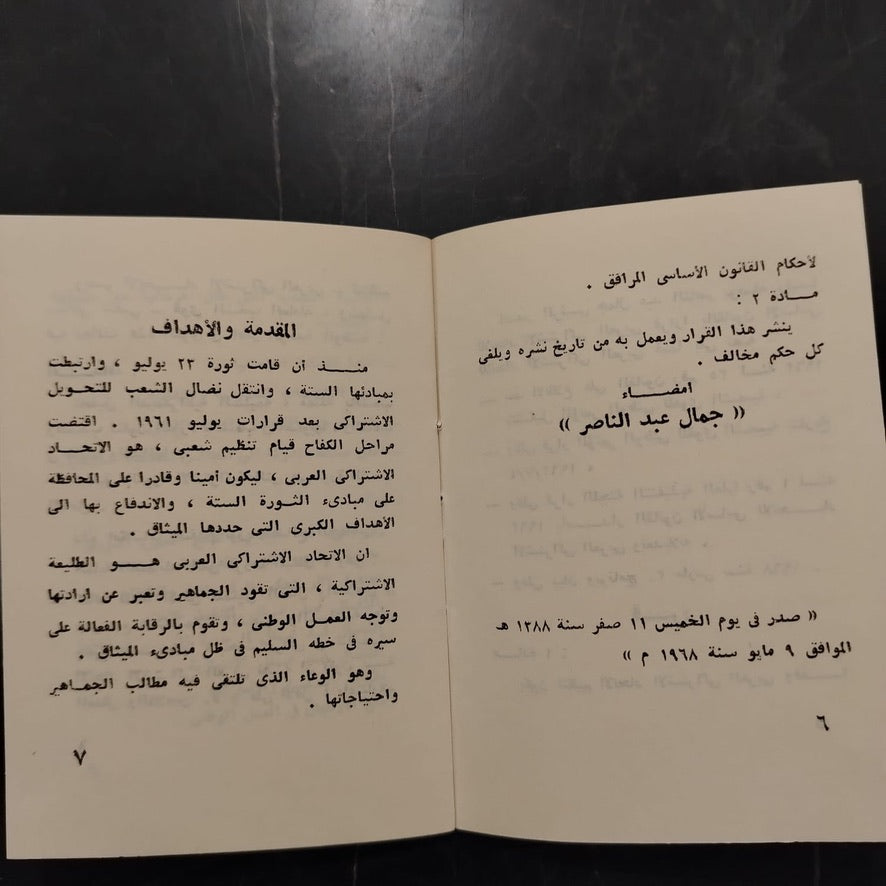 لأحكام القانون الأساسى المرافق .
مـــادة ٢ :
ينشر هذا القرار ويعمل به من تاريخ نشره ويلغى
كل حكم مخالف .
امضـــاء
(( جمال عبد الناصر ))
(( صدر فى يوم الخميس ١١ صفر سنة ١٣٨٨ هـ
الموافق ٩ مايو سنة ١٩٦٨ م ))
٦
المقدمة والأهداف
منـــذ أن قامت ثورة ٢٣ يوليو ، وارتبطت
بمبادئها الستة ، وانتقل نضال الشعب للتحويل
الاشتراكى بعد قرارات يوليو ١٩٦١ . اقتضت
مراحل الكفاح قيام تنظيم شعبى ، هو الاتحـاد
الاشتراكى العربى ، ليكون أمينا وقادرا على المحافظة
على مبادىء الثـورة الستة ، والاندفاع بها الى
الأهداف الكبرى التى حددها الميثاق .
ان الاتحاد الاشتراكى العربى هـــو الطليعة
الاشتراكية ، التى تقود الجماهير وتعبر عن ارادتها
وتوجه العمل الوطنى ، وتقوم بالرقابة الفعالة على
سيره فى خطه السليم فى ظل مبادىء الميثاق .
وهو الوعاء الذى تلتقى فيه مطالب الجمـاهير
واحتياجاتها .
٧